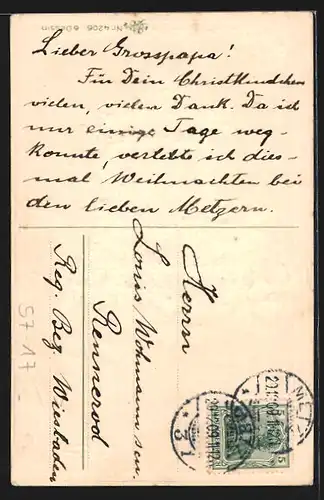 No 4206 6 Dessin
Lieber Grosspapa!
Für Dein Christkindchen
vielen, vielen Dank. Da ich
nur einige Tage weg-
konnte, verlebte ich dies-
mal Weihnachten bei
den lieben Metzern.
Herrn
Louis Wohmann sen.
Rennerod
Reg. Bez. Wiesbaden
S7 17
METZ
5